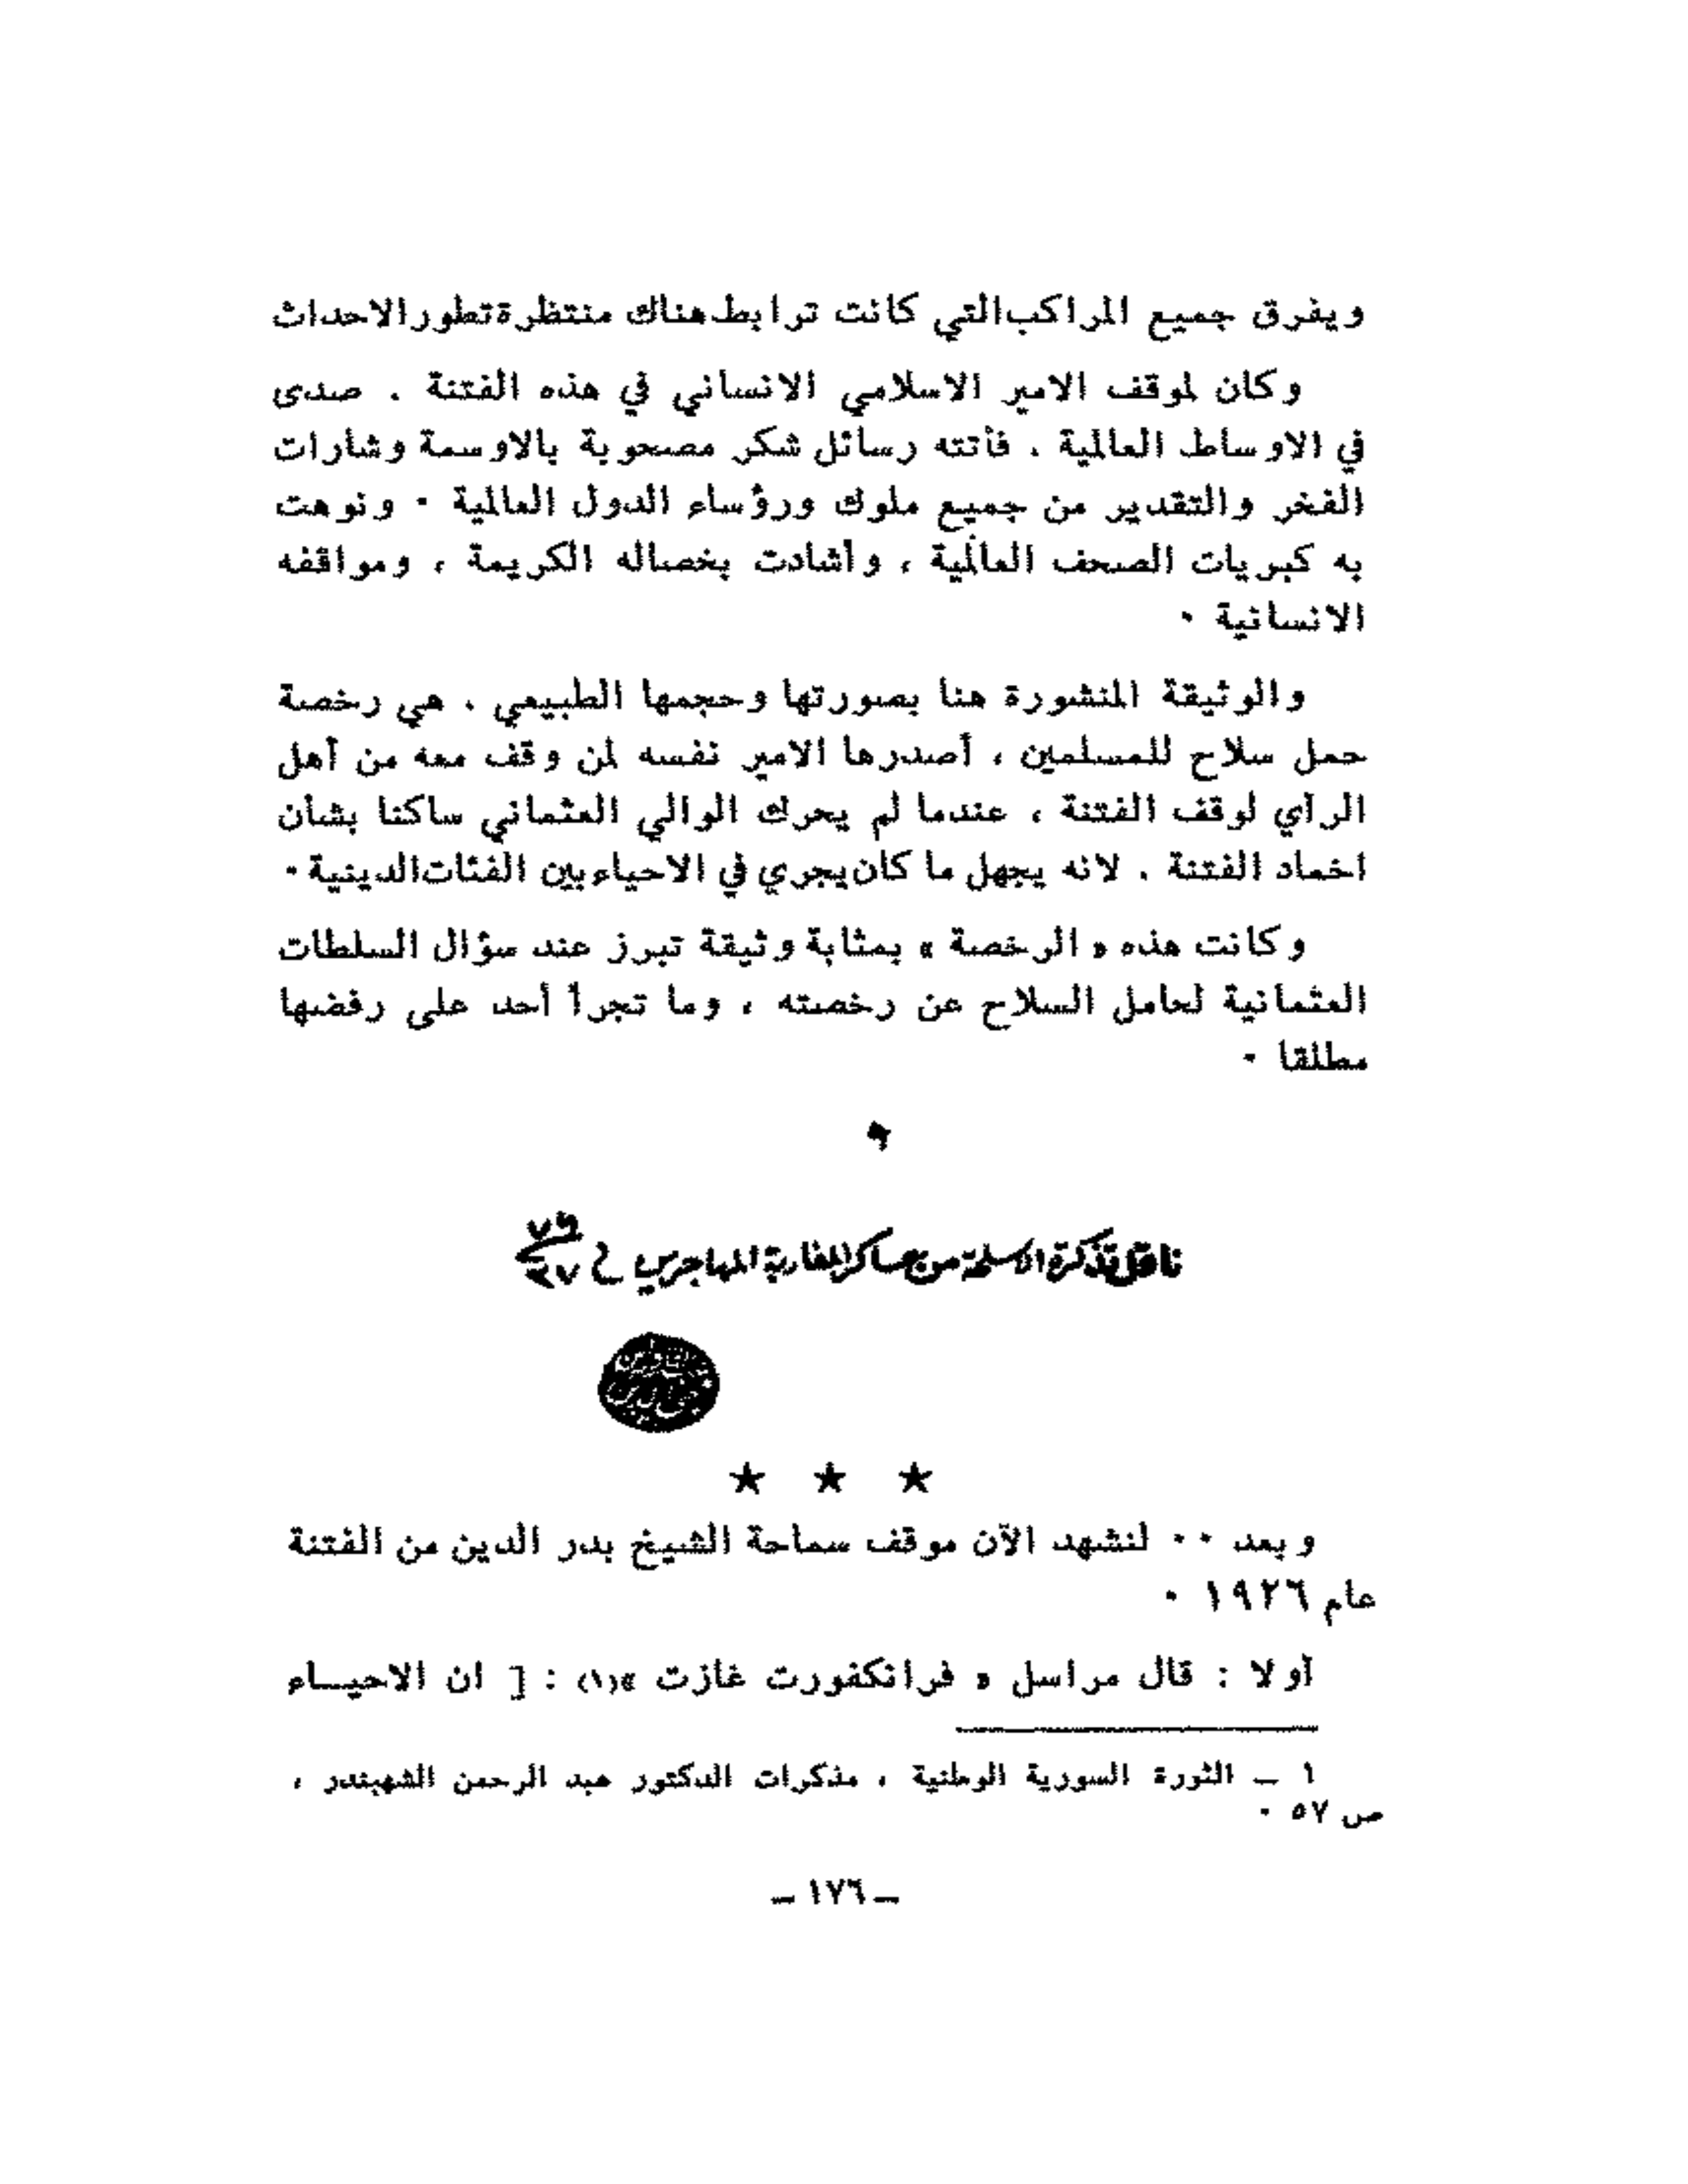 ويفرق جميع المراكب التي كانت ترابط هناك منتظرة تطور الاحداث
وكان لموقف الامير الاسلامي الانساني في هذه الفتنة ، صدى
في الاوساط العالمية ، فأتته رسائل شكر مصحوبة بالاوسمة وشارات
الفخر والتقدير من جميع ملوك ورؤساء الدول العالمية ٠ ونوهت
به كبريات الصحف العالمية ، وأشادت بخصاله الكريمة ، ومواقفه
الانسانية ٠
والوثيقة المنشورة هنا بصورتها وحجمها الطبيعي ، هي رخصة
حمل سلاح للمسلمين ، أصدرها الامير نفسه لمن وقف معه من أهل
الرأي لوقف الفتنة ، عندما لم يحرك الوالي العثماني ساكنا بشأن
اخماد الفتنة ، لانه يجهل ما كان يجري في الاحياء بين الفئات الدينية ٠
وكانت هذه « الرخصة » بمثابة وثيقة تبرز عند سؤال السلطات
العثمانية لحامل السلاح عن رخصته ، وما تجرأ أحد على رفضها
مطلقا ٠
ناقل تذكرة الاسلحة من عساكر المغاربة المهاجرين في
★ ★ ★
وبعد ٠٠ لنشهد الآن موقف سماحة الشيخ بدر الدين من الفتنة
عام ١٩٢٦ ٠
أولا : قال مراسل « فرانكفورت غازت »(١) : [ ان الاحيــاء
١ ــ الثورة السورية الوطنية ، مذكرات الدكتور عبد الرحمن الشهبندر ،
ص ٥٧ ٠
ــ ١٧٦ ــ